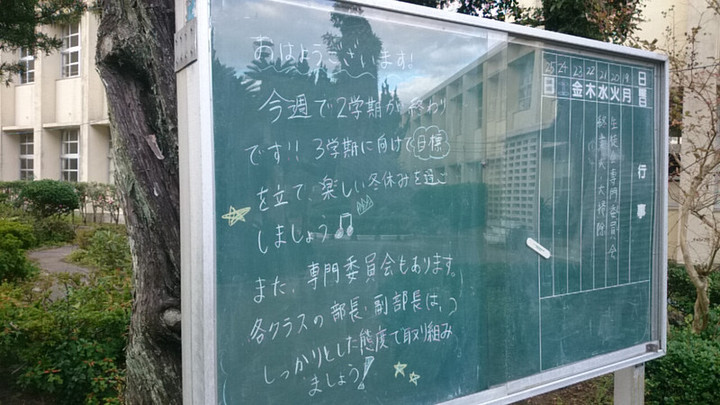 おはようございます!
今週で2学期が終わり
です!! 3学期に向けて目標
を立て、楽しい冬休みを過ご
しましょう♫
また、専門委員会もあります。
各クラスの部長、副部長は、
しっかりとした態度で取り組み
ましょう!
日曜 行事
19 月
20 火 生徒会専門委員会
21 水 終業式 大掃除
22 木
23 金
24
25 日